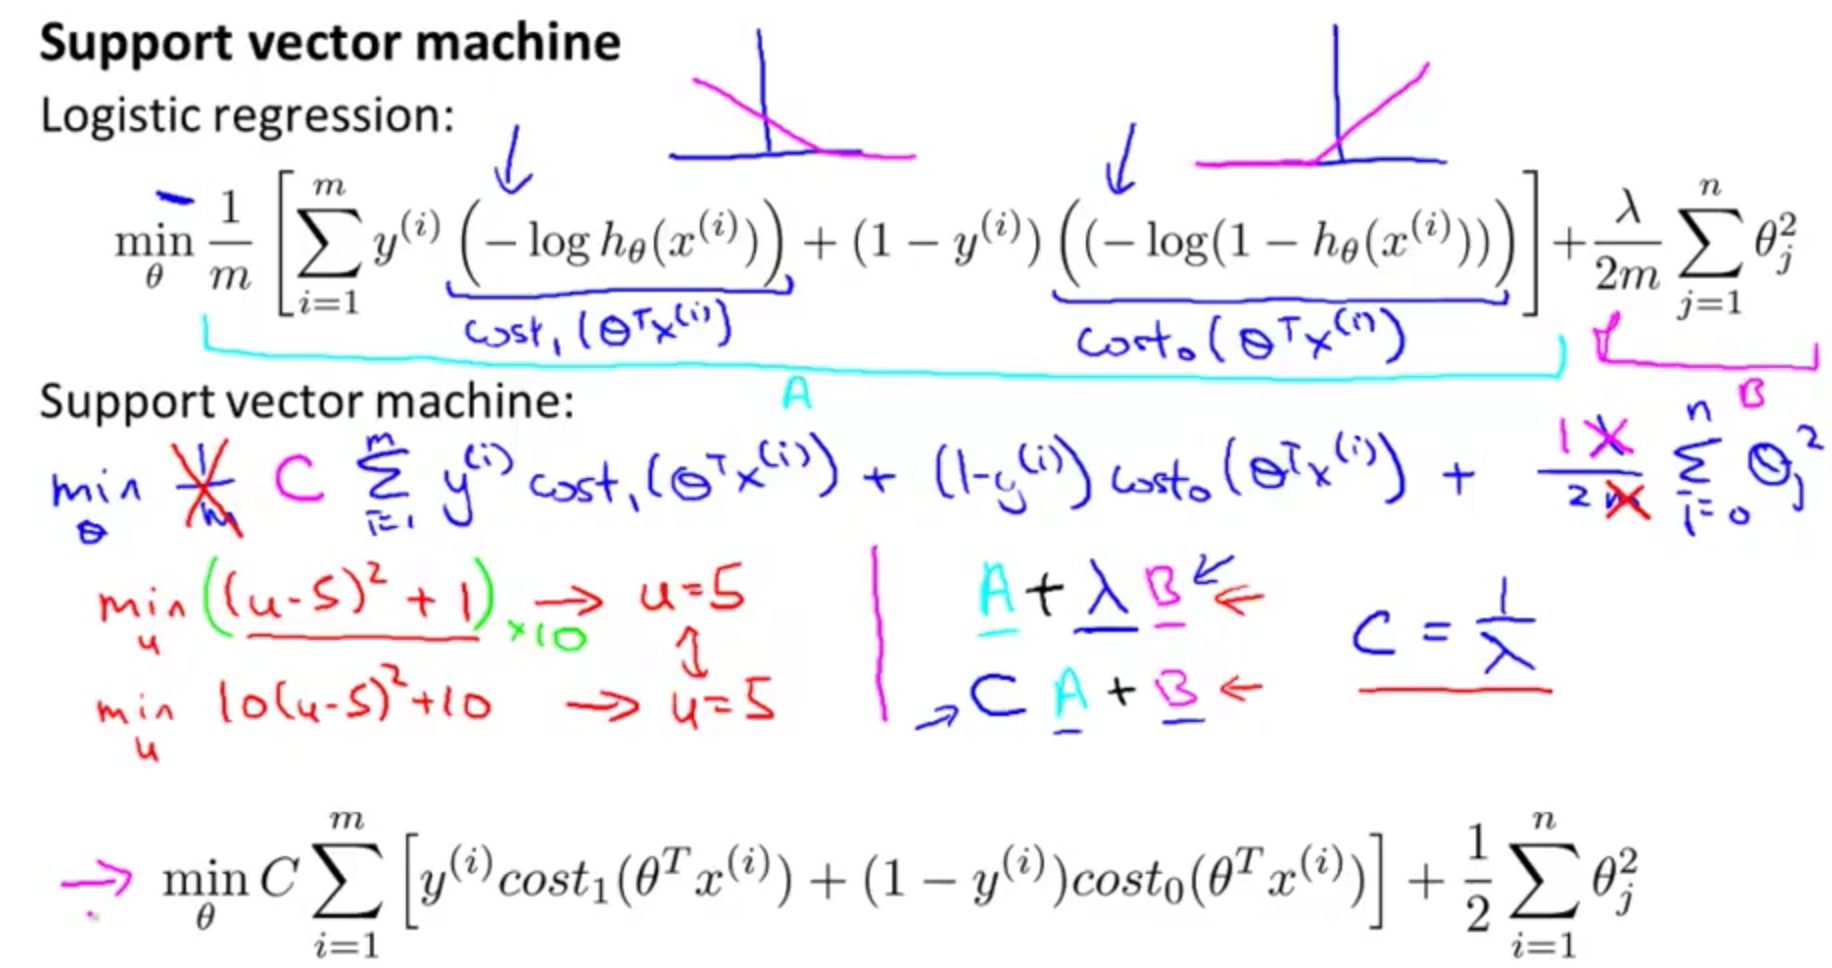 Support vector machine
Logistic regression:
min_θ 1/m [ ∑_{i=1}^{m} y^{(i)} (− log h_θ(x^{(i)})) + (1 − y^{(i)}) ((− log(1 − h_θ(x^{(i)}))) ] + λ/2m ∑_{j=1}^{n} θ_j^2
cost₁(θᵀx⁽ⁱ⁾) cost₀(θᵀx⁽ⁱ⁾)
A B
Support vector machine:
min_θ 1/m C ∑_{i=1}^{m} y^{(i)} cost₁(θᵀx⁽ⁱ⁾) + (1-y^{(i)}) cost₀(θᵀx⁽ⁱ⁾) + 1 λ/2m ∑_{i=0}^{n} θ_j^2
min_u ((u-5)² + 1) ×10 → u=5
A + λ B ←
C = 1/λ
min_u 10(u-5)²+10 → u=5
→ C A + B ←
→ min_θ C ∑_{i=1}^{m} [ y^{(i)} cost₁(θᵀx^{(i)}) + (1 − y^{(i)})cost₀(θᵀx^{(i)}) ] + 1/2 ∑_{i=1}^{n} θ_j^2